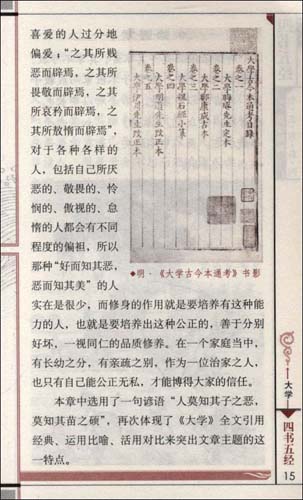 喜爱的人过分地
偏爱；“之其所贱
恶而辟焉，之其所
畏敬而辟焉，之其
所哀矜而辟焉，之
其所敖惰而辟焉”，
对于各种各样的
人，包括自己所厌
恶的、敬畏的、怜
悯的、傲视的、怠
惰的人都会有不同
程度的偏袒，所以
那种“好而知其恶，
恶而知其美”的人
实在是很少，而修身的作用就是要培养有这种能
力的人，也就是要培养出这种公正的，善于分别
好坏，一视同仁的品质修养。在一个家庭当中，
有长幼之分，有亲疏之别，作为一位治家之人，
也只有自己能公正无私，才能博得大家的信任。
本章中选用了一句谚语“人莫知其子之恶，
莫知其苗之硕”，再次体现了《大学》全文引用
经典、运用比喻、活用对比来突出文章主题的这
一特点。
大學古今本通考目錄
卷之一
卷之二
卷之三
卷之四
卷之五
◆明·《大学古今本通考》书影
大学
四书五经
15